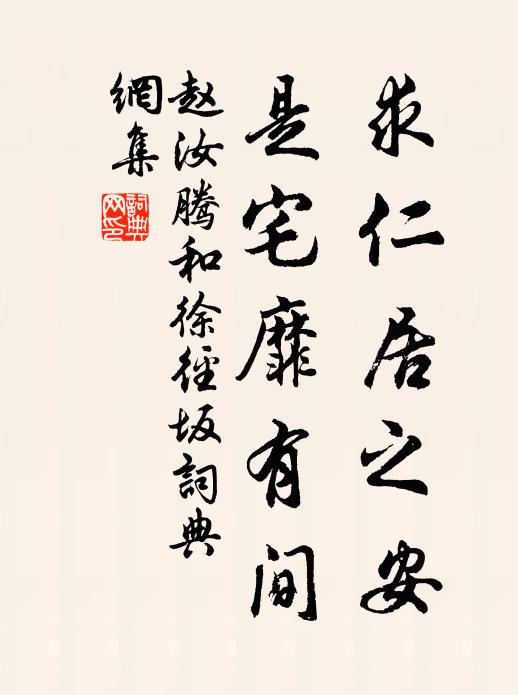 求仁居之安
是宅靡有间
赵汝腾和徐径坂詞典
網集
詞典
网印